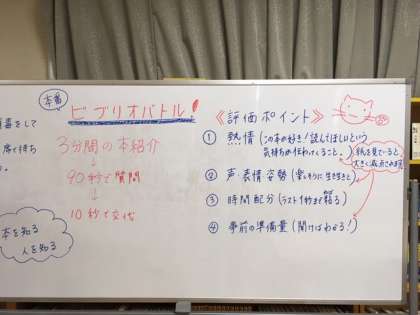 本番
ビブリオバトル!
3分間の本紹介
↓
90秒で質問
↓
10秒で交代
本を知る
人を知る
《評価ポイント》
① 熱情 (この本が好き!読んでほしいという
気持ちが伝わってくること。)
紙を見ていると、
大きく減点されます
② 声 表情 姿勢 (楽しそうに生き生きと)
③ 時間配分 (ラスト1秒まで語る)
④ 事前の準備量 (聞けばわかる!)